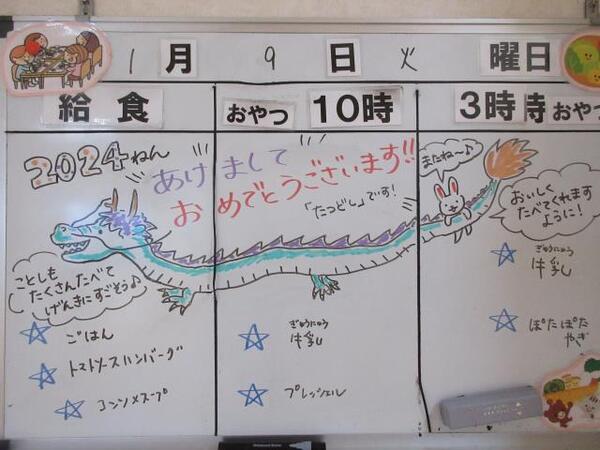 1月 9日 火曜日
給食
おやつ 10時
3時 時 おやつ
2024ねん
あけまして
おめでとうございます!!
「たつどし」です!
またね〜♪
おいしく
たべてくれます
ように!
ことしも
たくさんたべて
げんきにすごそう♪
☆ ごはん
☆ トマトソースハンバーグ
☆ コンソメスープ
ぎゅうにゅう
☆ 牛乳
☆ プレッツェル
ぎゅうにゅう
☆ 牛乳
☆ ぽたぽた
やき